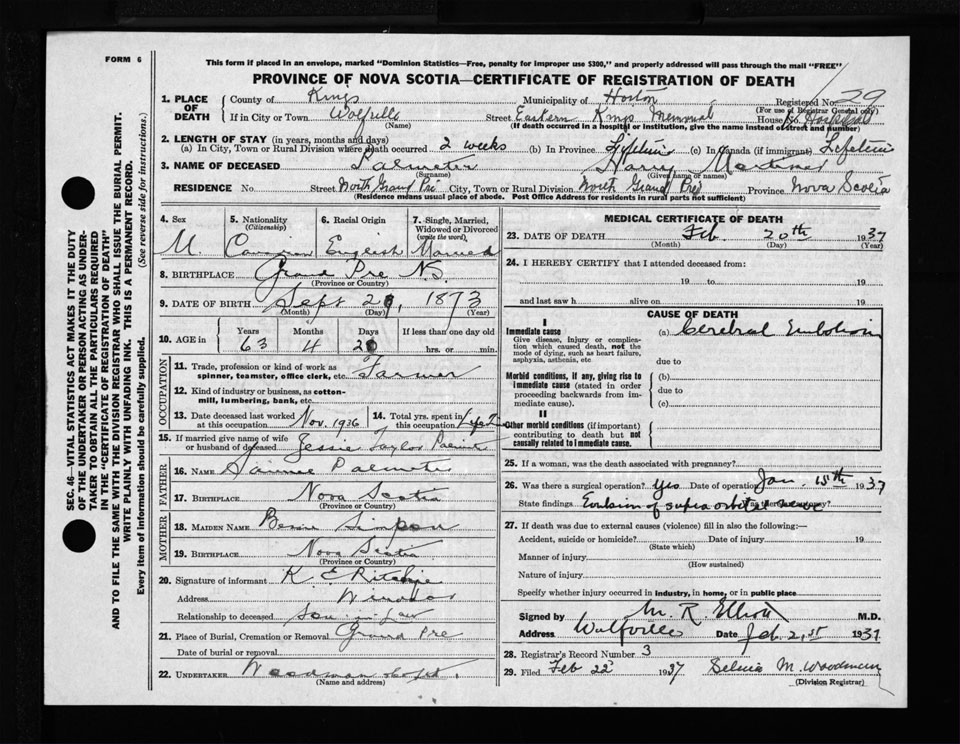 FORM 6
This form if placed in an envelope, marked "Dominion Statistics—Free, penalty for improper use $300," and properly addressed will pass through the mail "FREE"
PROVINCE OF NOVA SCOTIA—CERTIFICATE OF REGISTRATION OF DEATH
SEC. 46—VITAL STATISTICS ACT MAKES IT THE DUTY
OF THE UNDERTAKER OR PERSON ACTING AS UNDER-
TAKER TO OBTAIN ALL THE PARTICULARS REQUIRED
IN THE "CERTIFICATE OF REGISTRATION OF DEATH"
AND TO FILE THE SAME WITH THE DIVISION REGISTRAR WHO SHALL ISSUE THE BURIAL PERMIT.
WRITE PLAINLY WITH UNFADING INK. THIS IS A PERMANENT RECORD.
Every item of information should be carefully supplied. (See reverse side for instructions.)
1. PLACE OF DEATH
County of Kings Municipality of Horton Registered No. 29
(For use of Registrar General only)
If in City or Town Wolfville Street Eastern Kings Memorial House No. Hospital
(Name) (If death occurred in a hospital or institution, give the name instead of street and number)
2. LENGTH OF STAY (in years, months and days)
(a) In City, Town or Rural Division where death occurred 2 weeks (b) In Province Lifetime (c) In Canada (if immigrant) Lifetime
3. NAME OF DECEASED Palmeter Harry
(Surname) (Given name or names)
RESIDENCE No. Street North Grand Pré City, Town or Rural Division North Grand Pré Province Nova Scotia
(Residence means usual place of abode. Post Office Address for residents in rural parts not sufficient)
4. Sex 5. Nationality 6. Racial Origin 7. Single, Married,
(Citizenship) Widowed or Divorced
(write the word)
M. Canadian English Married
8. BIRTHPLACE Grand Pre N.S.
(Province or Country)
9. DATE OF BIRTH Sept , 1873
(Month) (Day) (Year)
10. AGE in Years Months Days If less than one day old
63 4 hrs. or min.
OCCUPATION
11. Trade, profession or kind of work as
spinner, teamster, office clerk, etc. Farmer
12. Kind of industry or business, as cotton-
mill, lumbering, bank, etc.
13. Date deceased last worked 14. Total yrs. spent in
at this occupation Nov. 1936 this occupation
15. If married give name of wife
or husband of deceased Jessie Taylor Palmeter
FATHER
16. NAME Palmeter
17. BIRTHPLACE Nova Scotia
(Province or Country)
MOTHER
18. MAIDEN NAME Simpson
19. BIRTHPLACE Nova Scotia
(Province or Country)
20. Signature of informant K E Ritchie
Address Windsor
Relationship to deceased Son in law
21. Place of Burial, Cremation or Removal Grand Pre
Date of burial or removal
22. UNDERTAKER Woodman
(Name and address)
MEDICAL CERTIFICATE OF DEATH
23. DATE OF DEATH Feb 20th 1937
(Month) (Day) (Year)
24. I HEREBY CERTIFY that I attended deceased from:
19 to 19
and last saw h alive on 19
CAUSE OF DEATH
I
Immediate cause (a) Cerebral Embolism
Give disease, injury or complica-
tion which caused death, not the
mode of dying, such as heart failure,
asphyxia, asthenia, etc
due to
Morbid conditions, if any, giving rise to (b)
immediate cause (stated in order due to
proceeding backwards from im-
mediate cause). (c)
II
Other morbid conditions (if important)
contributing to death but not
causally related to immediate cause.
25. If a woman, was the death associated with pregnancy?
26. Was there a surgical operation? yes Date of operation Jan. 15th 1937
State findings of supra orbital nerve
27. If death was due to external causes (violence) fill in also the following:—
Accident, suicide or homicide? Date of injury 19
(State which)
Manner of injury
(How sustained)
Nature of injury
Specify whether injury occurred in industry, in home, or in public place
Signed by M. R. Elliott M.D.
Address Wolfville Date Feb. 21st 1937
28. Registrar's Record Number 3
29. Filed Feb 22 1937 M. Woodman
(Division Registrar)